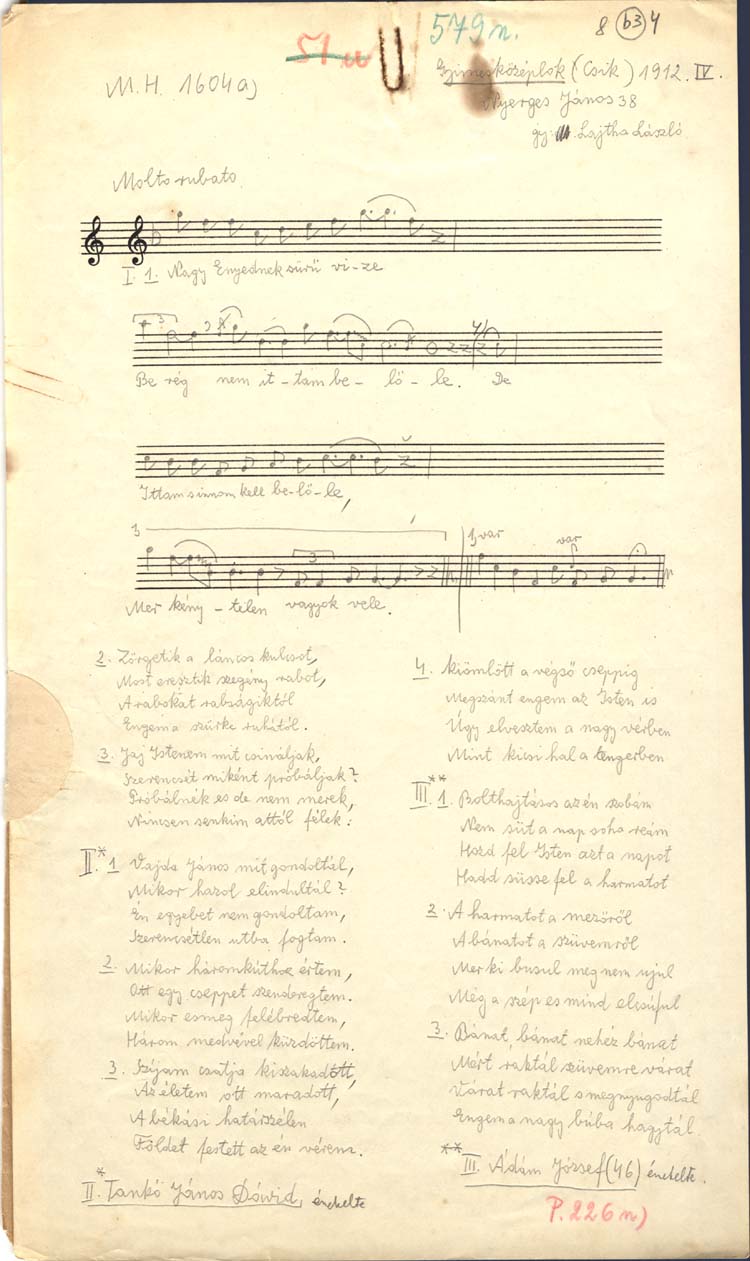 579n.
8 b3 4
51.
M.H. 1604a)
Gyimesközéplok (Csik) 1912. IV.
Nyerges János 38
gy: Lajtha László
Molto rubato
I. 1. Nagy Enyednek sürü vi-ze
Be rég nem it-tam be-lő-le. De
Ittam s innom kell be-lő-le,
1, var
var
Mer kény-telen vagyok vele.
2. Zörgetik a láncos kulcsot,
Most eresztik szegény rabot,
A rabokat rabságiktól
Engem a szürke ruhától.
3. Jaj Istenem mit csináljak,
Szerencsét miként próbáljak?
Próbálnék es de nem merek,
Nincsen senkim attól félek:
II.* 1 Vajda János mit gondoltál,
Mikor hazol elindultál?
Én egyebet nem gondoltam,
Szerencsétlen utba fogtam.
2. Mikor háromkúthoz értem,
Ott egy cseppet szenderegtem.
Mikor esmeg felébredtem,
Három medvével küzdöttem.
3. Szíjam csatja kiszakadott,
Az életem ott maradott,
A békási határszélen
Földet festett az én vérem.
II.* Tankó János Dáwid, énekelte
4. kiömlött a végső cseppig
Megszánt engem az Isten is
Úgy elvesztem a nagy vérben
Mint kicsi hal a tengerben
III.** 1. Bolthajtásos az én szobám
Nem süt a nap soha reám
Hozd fel Isten azt a napot
Hadd süsse fel a harmatot
2. A harmatot a mezőről
A bánatot a szüvemről
Mer ki busul meg nem ujul
Még a szép es mind elcsúful
3. Bánat, bánat nehéz bánat
Mért raktál szüvemre várat
Várat raktál s megnyugodtál
Engem a nagy búba hagytál.
** III. Ádám József (46) énekelte.
P. 226n)